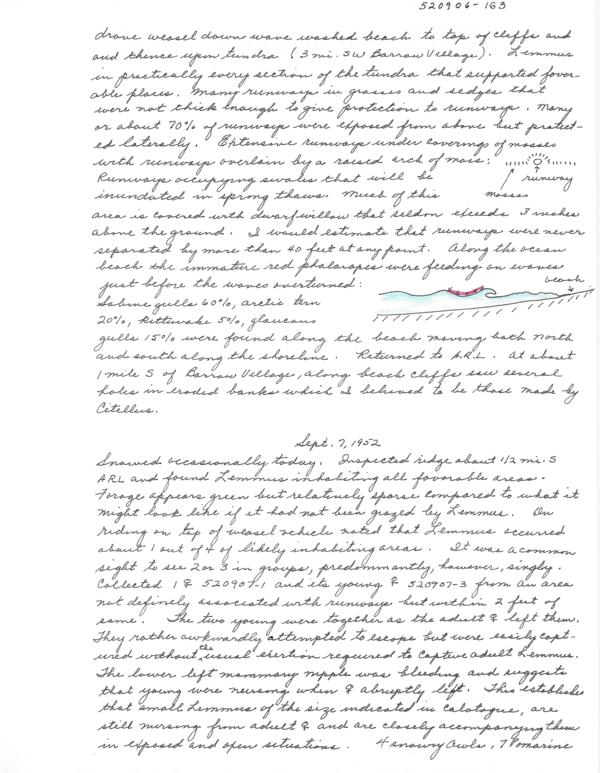 520906-163
drove weasel down wave washed beach to top of cliffs and
and thence upon tundra (3 mi. SW Barrow Village). Lemmus
in practically every section of the tundra that supported favor-
able places. Many runways in grasses and sedges that
were not thick enough to give protection to runways. Many
or about 70% of runways were exposed from above but protect-
ed laterally. Extensive runways under coverings of mosses
with runways overlain by a raised arch of moss:
Runways occupying swales that will be
runway
inundated in spring thaws. Much of this
mosses
area is covered with dwarf willow that seldon exceeds 3 inches
above the ground. I would estimate that runways were never
separated by more than 40 feet at any point. Along the ocean
beach the immature red phalaropes were feeding on waves
just before the waves overturned:
beach
Sabine gulls 60%, arctic tern
20%, Kittiwake 5%, glaucous
gulls 15% were found along the beach moving both north
and south along the shoreline. Returned to A.R.L. At about
1 mile S of Barrow Village, along beach cliffs saw several
holes in eroded banks which I believed to be those made by
Citellus.
Sept. 7, 1952
Snowed occasionally today. Inspected ridge about 1/2 mi. S
ARL and found Lemmus inhabiting all favorable areas.
Forage appears green but relatively sparse compared to what it
might look like if it had not been grazed by Lemmus. On
riding on top of weasel vehicle noted that Lemmus occurred
about 1 out of 4 of likely inhabiting areas. It was a common
sight to see 2 or 3 in groups, predommantly, however, singly.
Collected 1 ♀ 520907-1 and its young ♀ 520907-3 from an area
not definely associated with runways but within 2 feet of
same. The two young were together as the adult ♀ left them.
They rather awkwardly attempted to escape but were easily capt-
ured without the usual exertion required to captive adult Lemmus.
The lower left mammary nipple was bleeding and suggests
that young were nursing when ♀ abruptly left. This establishes
that small Lemmus of the size indicated in catalogue, are
still nursing from adult ♀ and are closely accompanying them
in exposed and open situations. 4 snowy owls, 7 Pomarine